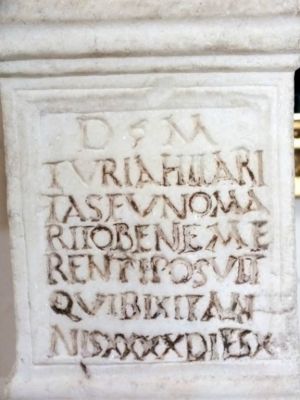 D S M
TVRIA HILARI
TAS EVNO MA
RITO BENE ME
RENTI POSVIT
QVI BIXIT AN
NIS XXXX DIES X